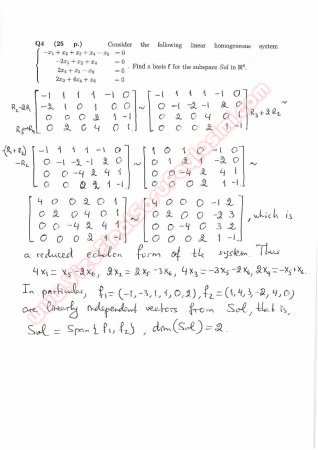 Q4 (25 p.) Consider the following linear homogeneous system
-x₁ + x₂ + x₃ + x₄ - x₅ = 0
-2x₁ + x₂ + x₄ = 0
2x₄ + x₅ - x₆ = 0
2x₂ + 4x₄ + x₆ = 0
. Find a basis f for the subspace Sol in R⁶.
R₂-2R₁
R₃↔R₄
[-1 1 1 1 -1 0
-2 1 0 1 0 0
0 0 0 2 1 -1
0 2 0 4 0 1] ~ [-1 1 1 1 -1 0
0 -1 -2 -1 2 0
0 2 0 4 0 1
0 0 0 2 1 -1] R₃+2R₂ ~
-(R₁+R₂)
-R₂
[-1 1 1 1 -1 0
0 -1 -2 -1 2 0
0 0 -4 2 4 1
0 0 0 2 1 -1] ~ [1 0 1 0 -1 0
0 1 2 1 -2 0
0 0 -4 2 4 1
0 0 0 2 1 -1] ~
[4 0 0 2 0 1
0 2 0 4 0 1
0 0 -4 2 4 1
0 0 0 2 1 -1] ~ [4 0 0 0 -1 2
0 2 0 0 -2 3
0 0 -4 0 3 2
0 0 0 2 1 -1], which is
a reduced echelon form of the system. Thus
4x₁ = x₅-2x₆, 2x₂ = 2x₅-3x₆, 4x₃ = -3x₅-2x₆, 2x₄ = -x₅+x₆.
In particular, f₁ = (-1,-3,1,1,0,2), f₂ = (1,4,3,-2,4,0)
are linearly independent vectors from Sol, that is,
Sol = Span{f₁, f₂}, dim(Sol) = 2.